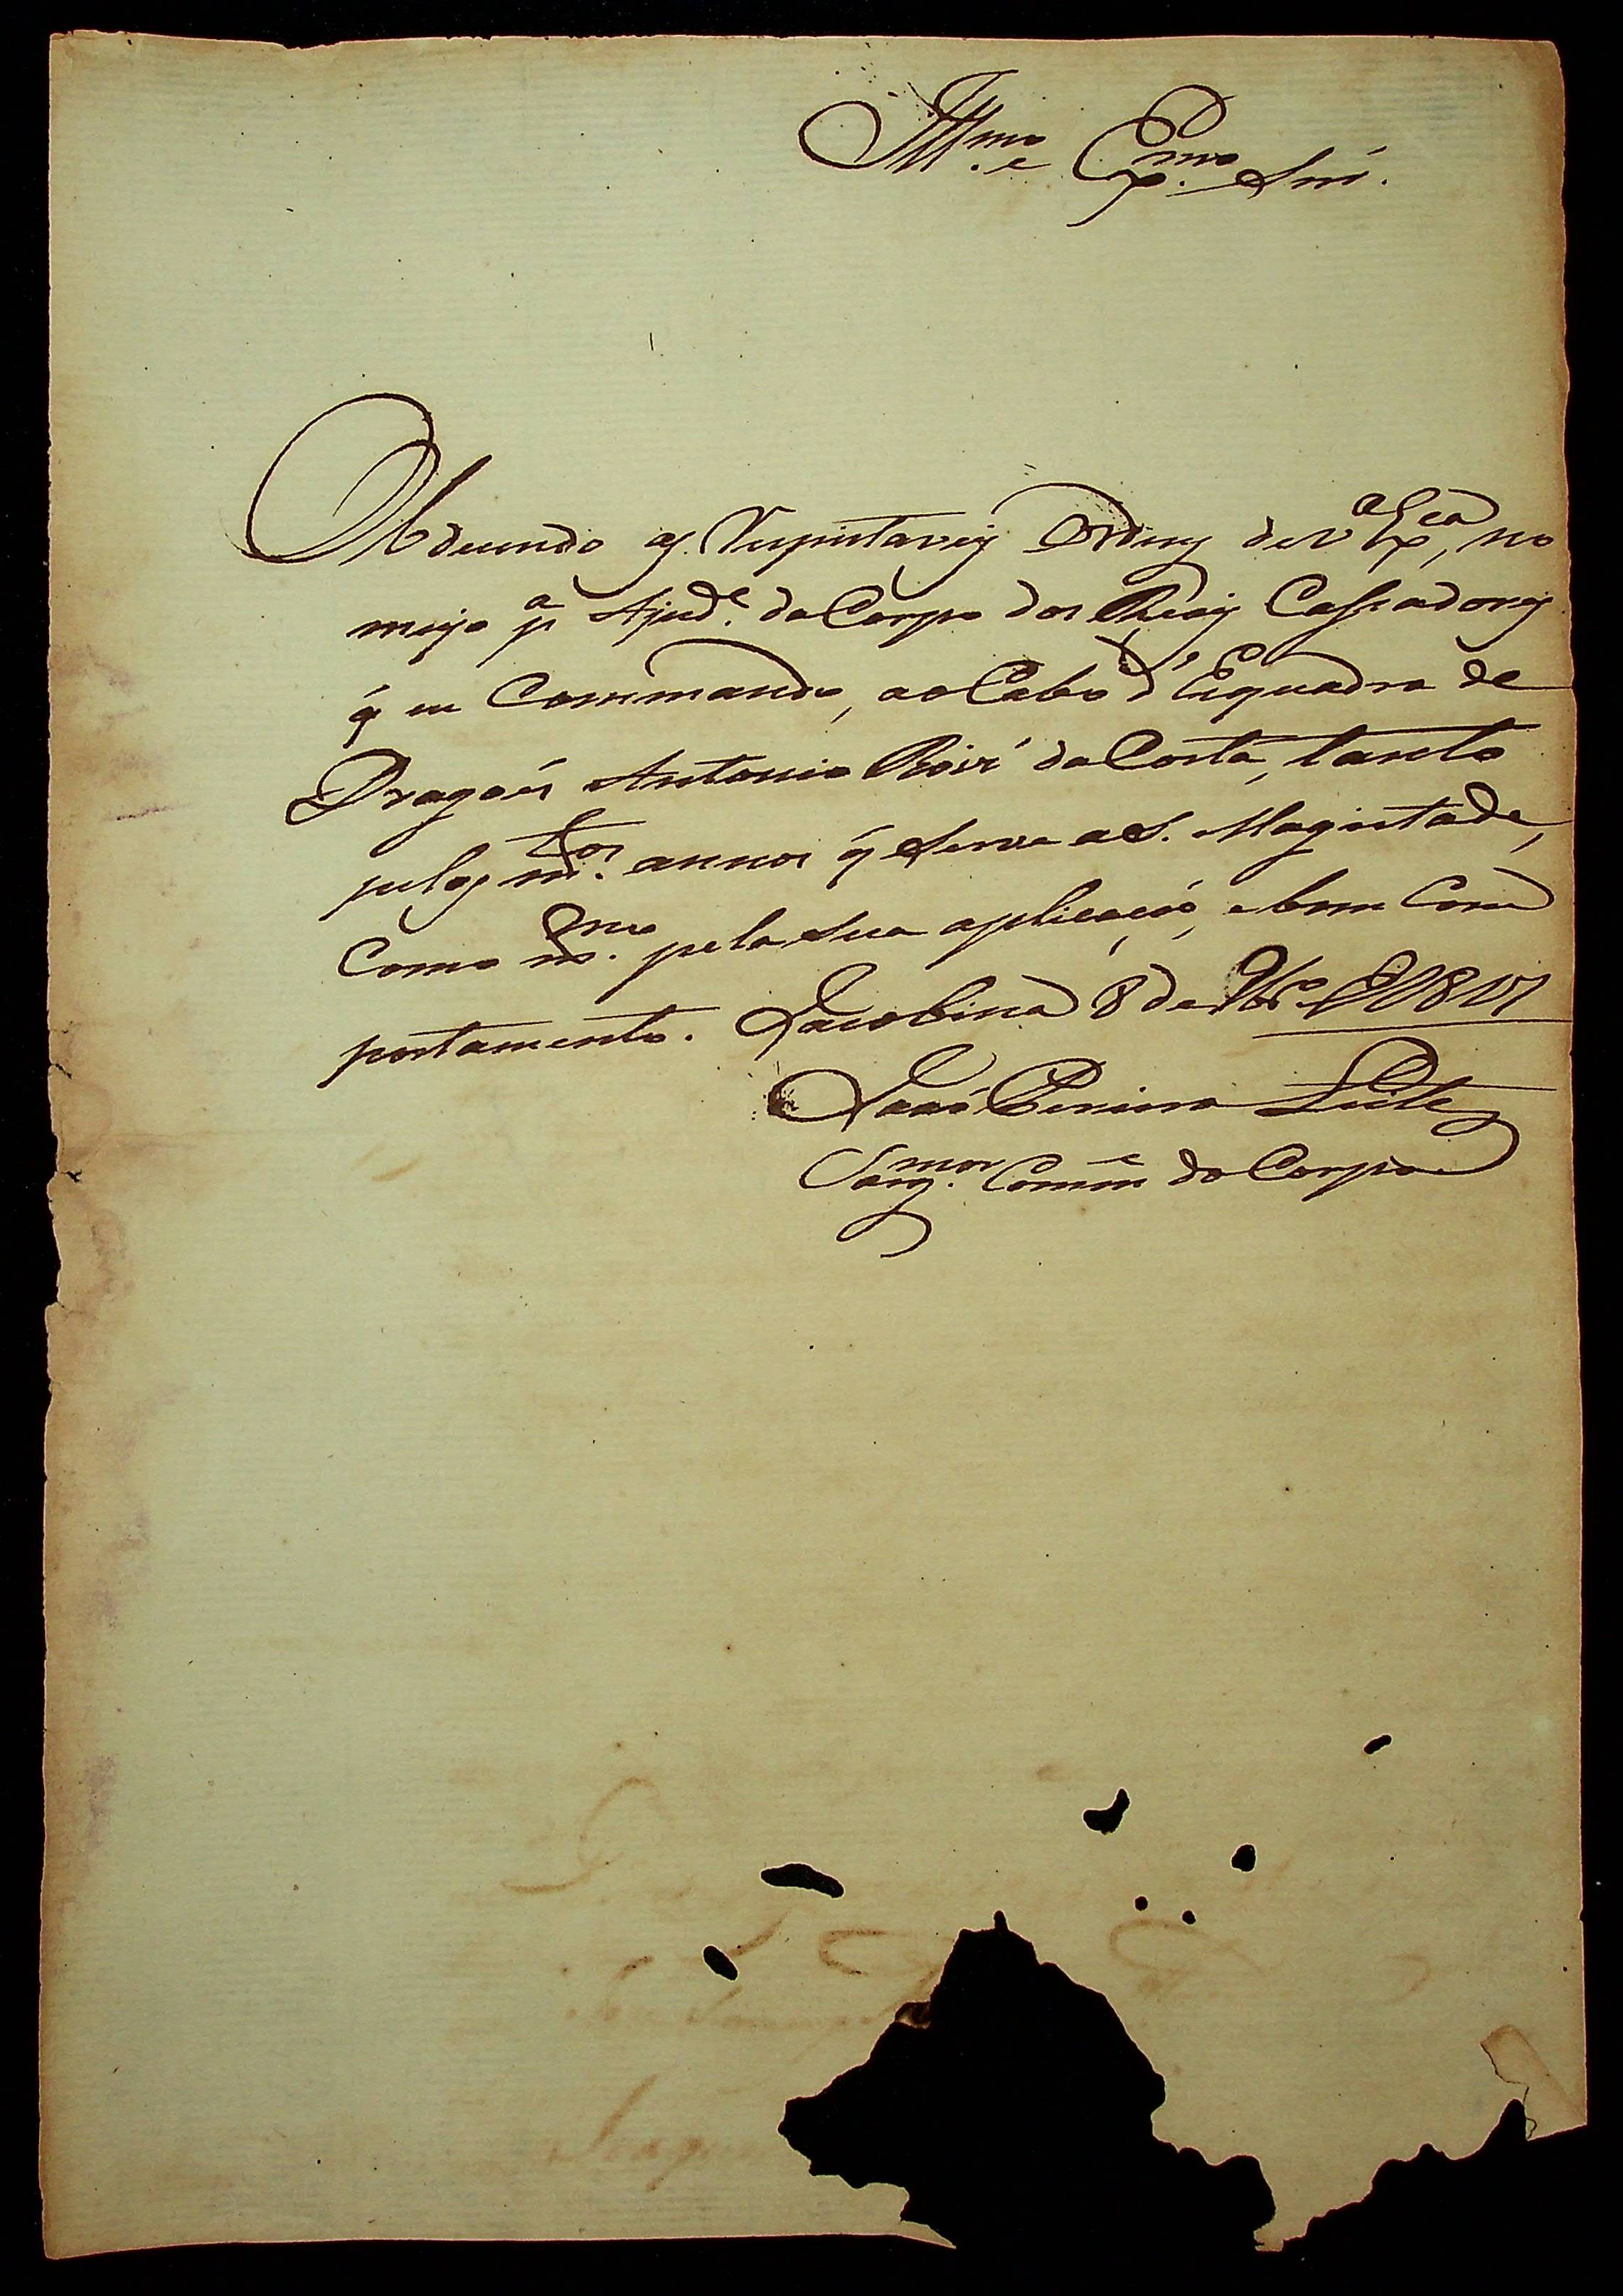 Ill.mo e Ex.mo Snr.
Obdecendo as Respeitaveis Ordens de V.a Ex.ca, no
meyo p.a Ajud.e do Corpo dos Reais Cassadores
q̃ eu Commando, ao Cabo d'Esquadra de
Dragoẽs Antonio Roiz' da Costa, tanto
pelos m.tos annos q̃ Serve a S. Magestade,
Como m.mo pela Sua aplicação, e bom Com
portamento. Jacobina 8 de 9br.o de 1801
João Pereira Leite
Sarg.mor Comm.e do Corpo